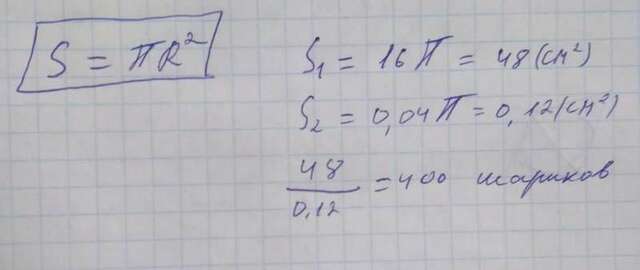 S = πR²
S₁ = 16π = 48 (см²)
S₂ = 0,04π = 0,12 (см²)
48
0,12 = 400 шариков